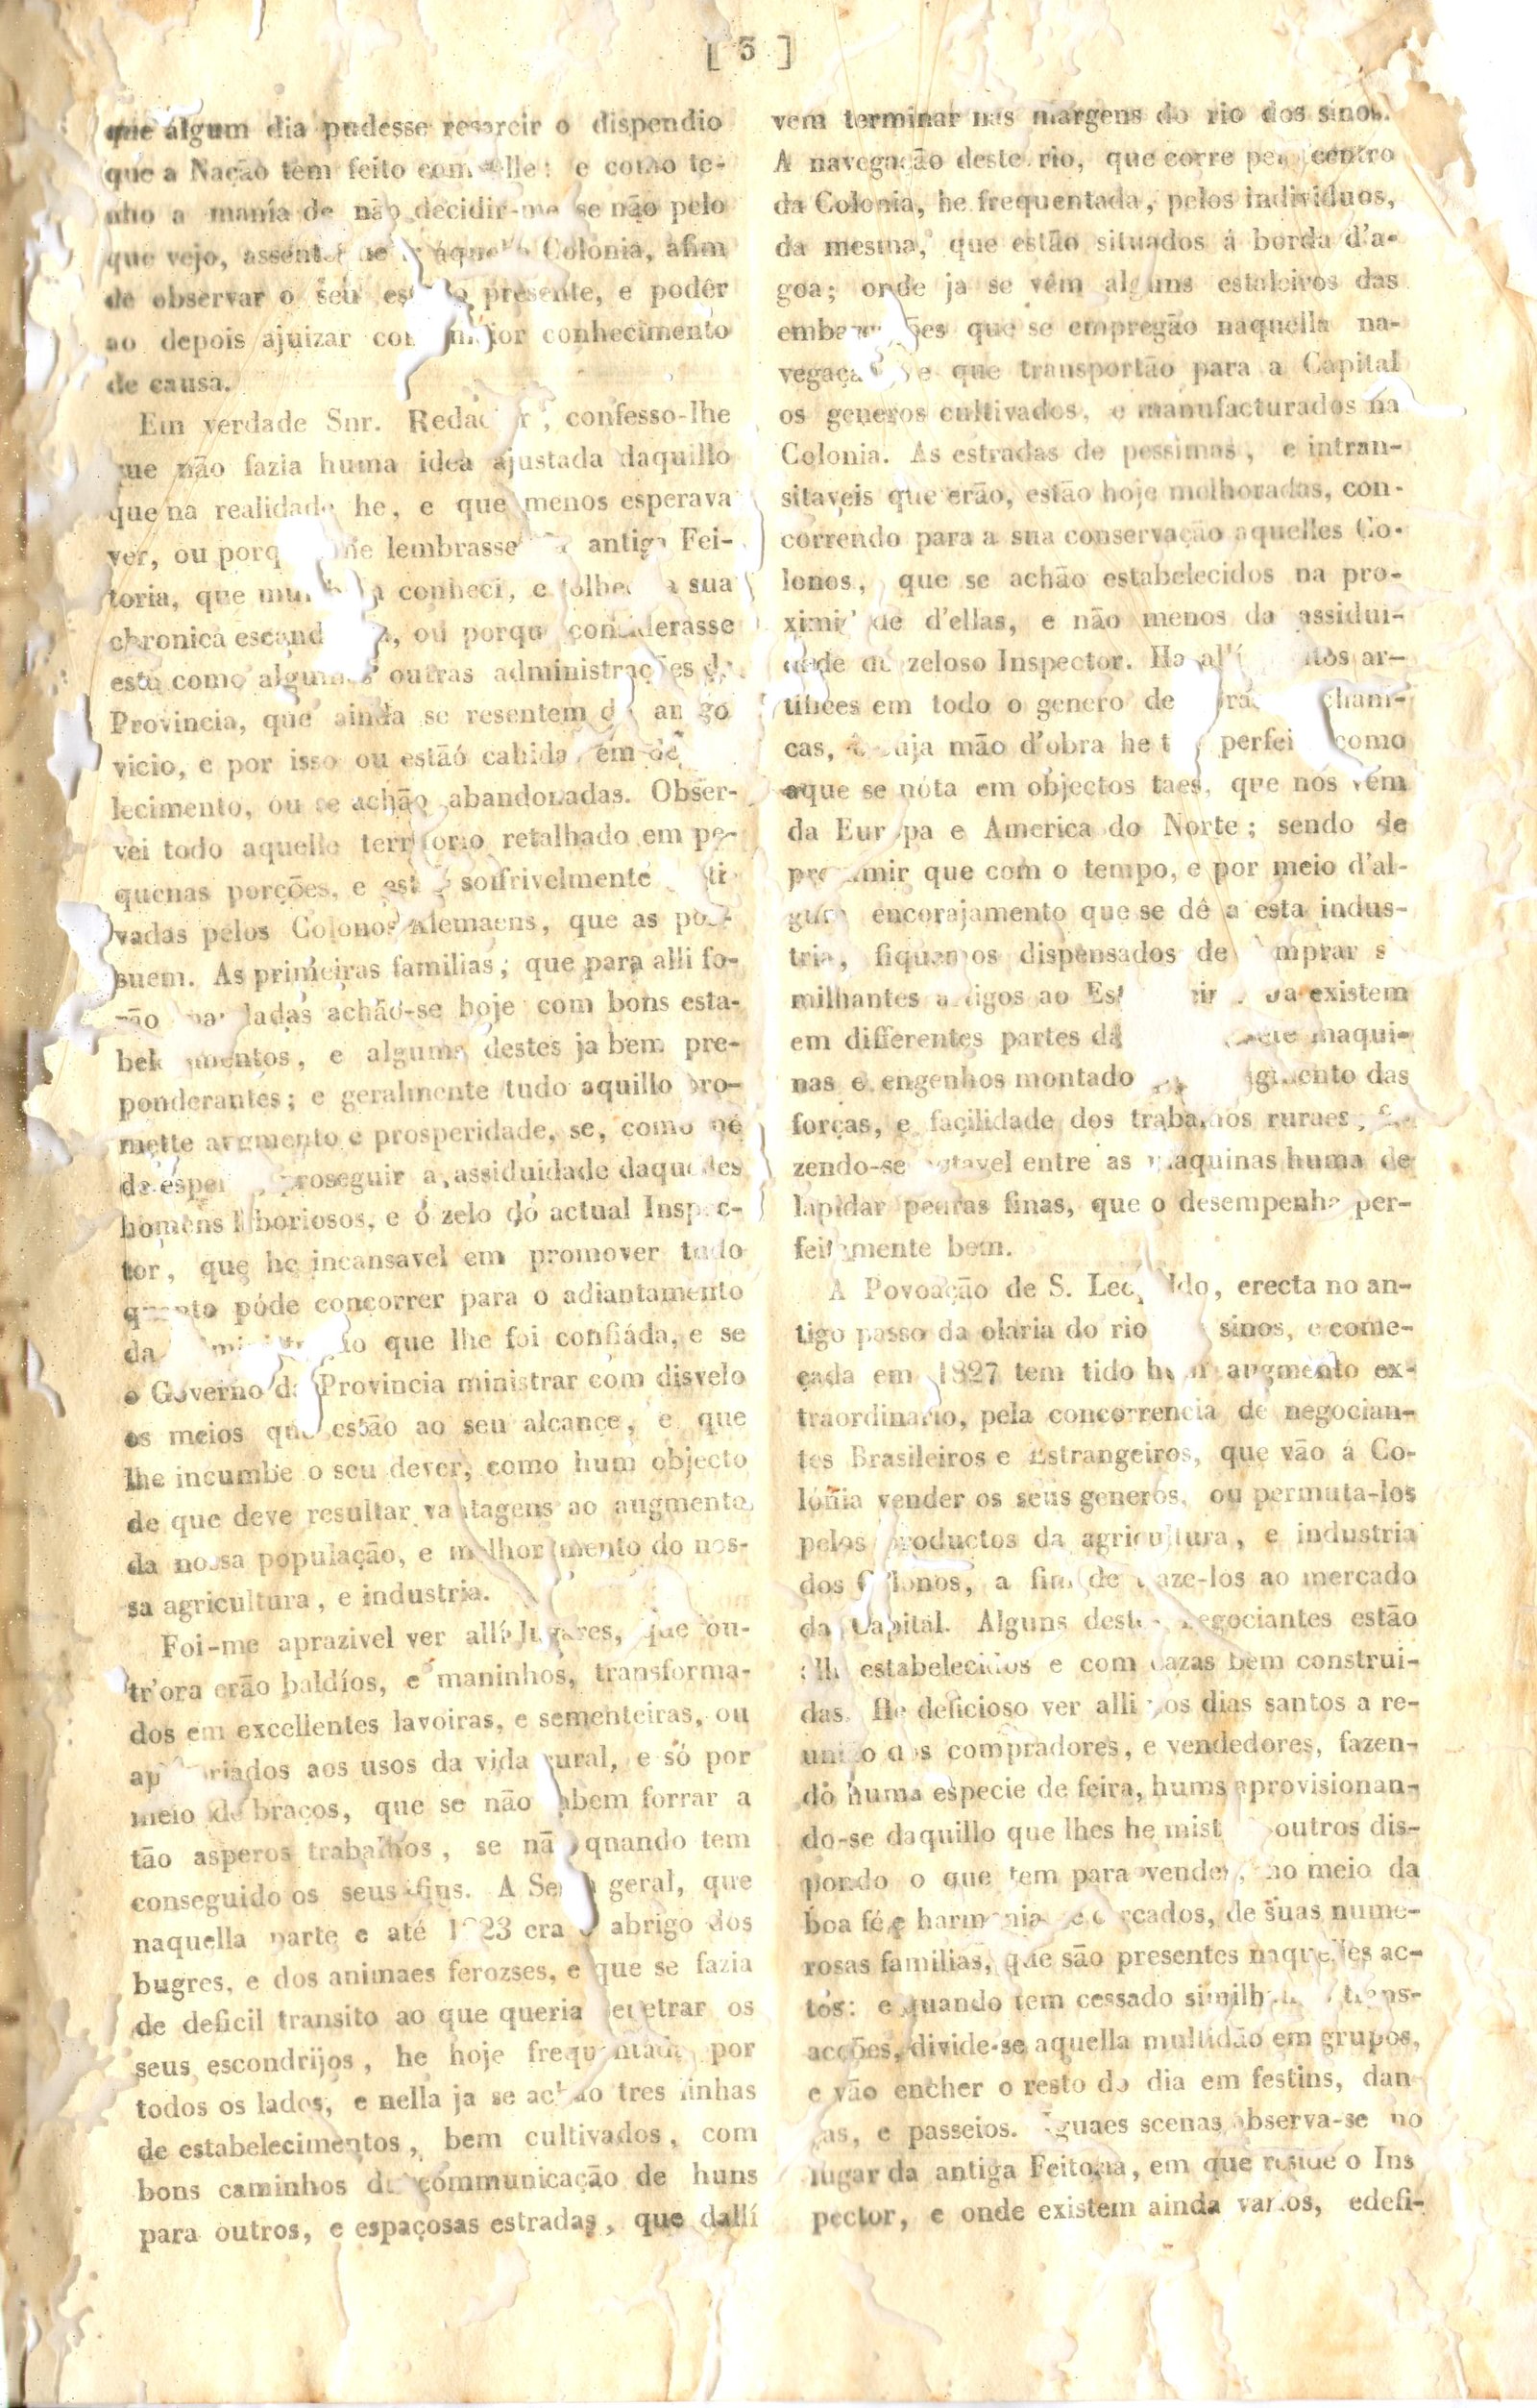 [ 3 ]
que algum dia pudesse resarcir o dispendio
que a Nação tem feito com elle: e como te-
nho a mania de não decidir-me se não pelo
que vejo, assentei aquella Colonia, afim
de observar o seu estado presente, e podêr
ao depois ajuizar com maior conhecimento
de causa.
Em verdade Snr. Redactor, confesso-lhe
que não fazia huma idea ajustada daquillo
que na realidade he, e que menos esperava
ver, ou porq me lembrasse da antiga Fei-
toria, que conheci, e a sua
chronica escandalosa, ou porque considerasse
esta como algumas outras administrações da
Provincia, que ainda se resentem do antigo
vicio, e por isso ou estáõ cahidas em
lecimento, ou se achão abandonadas. Obser-
vei todo aquelle territorio retalhado em pe-
quenas porções, e estas soffrivelmente culti-
vadas pelos Colonos Alemaens, que as pos-
suem. As primeiras familias; que para alli fo-
rão mandadas achão-se hoje com bons esta-
belecimentos, e alguns destes ja bem pre-
ponderantes; e geralmente tudo aquillo pro-
mette avgmento e prosperidade, se, como he
de esperar, proseguir a assiduidade daquelles
homens laboriosos, e o zelo do actual Inspec-
tor, que he incansavel em promover tudo
quanto póde concorrer para o adiantamento
da administração que lhe foi confiáda, e se
o Governo da Provincia ministrar com disvelo
os meios que estão ao seu alcance, e que
lhe incumbe o seu dever, como hum objecto
de que deve resultar vantagens ao augmento
da nossa população, e melhoramento do nos-
sa agricultura, e industria.
Foi-me aprazivel ver allí lugares, que ou-
tr'ora erão baldíos, e maninhos, transforma-
dos em excellentes lavoiras, e sementeiras, ou
apropriados aos usos da vida rural, e só por
meio de braços, que se não sabem forrar a
tão asperos trabalhos, se não quando tem
conseguido os seus fins. A Serra geral, que
naquella parte e até 1823 era o abrigo dos
bugres, e dos animaes ferozses, e que se fazia
de deficil transito ao que queria penetrar os
seus escondrijos, he hoje frequentada por
todos os lados, e nella ja se achão tres linhas
de estabelecimentos, bem cultivados, com
bons caminhos de communicação de huns
para outros, e espaçosas estradas, que dallí
vem terminar nas margens do rio dos sinos.
A navegação deste rio, que corre pelo centro
da Colonia, he frequentada, pelos individuos,
da mesma, que estão situados á borda d'a-
goa; onde ja se vêm alguns estaleiros das
embarcações que se empregão naquella na-
vegação e que transportão para a Capital
os generos cultivados, e manufacturados na
Colonia. As estradas de pessimas, e intran-
sitaveis que erão, estão hoje melhoradas, con-
correndo para a sua conservação aquelles Co-
lonos, que se achão estabelecidos na pro-
ximidade d'ellas, e não menos da assidui-
dade do zeloso Inspector. Ha allí ar-
tifices em todo o genero de obras mechani-
cas, cuja mão d'obra he tão perfeita como
aque se nóta em objectos taes, que nos vêm
da Europa e America do Norte; sendo de
presumir que com o tempo, e por meio d'al-
gum encorajamento que se dê a esta indus-
tria, fiquemos dispensados de comprar si-
milhantes artigos ao Estrangeiro. Ja existem
em differentes partes da maqui-
nas e engenhos montado augmento das
forças, e façilidade dos trabalhos ruraes, fa-
zendo-se notavel entre as maquinas huma de
lapidar pedras finas, que o desempenha per-
feitamente bem.
A Povoação de S. Leopoldo, erecta no an-
tigo passo da olaria do rio dos sinos, e come-
çada em 1827 tem tido hum augmento ex-
traordinario, pela concorrencia de negocian-
tes Brasileiros e Estrangeiros, que vão á Co-
lónia vender os seus generos, ou permuta-los
pelos productos da agricultura, e industria
dos Colonos, a fim de traze-los ao mercado
da Capital. Alguns destes negociantes estão
alli estabelecidos e com cazas bem construi-
das. He deficioso ver alli nos dias santos a re-
união dos compradores, e vendedores, fazen-
do huma especie de feira, hums aprovisionan-
do-se daquillo que lhes he mister outros dis-
pondo o que tem para vender, no meio da
boa fé e harmonia e cercados, de suas nume-
rosas familias, que são presentes naquelles ac-
tos: e quando tem cessado similhantes trans-
acções, divide-se aquella multidão em grupos,
e vão encher o resto do dia em festins, dan-
ças, e passeios. Iguaes scenas observa-se no
lugar da antiga Feitoria, em que reside o Ins
pector, e onde existem ainda varios, edefi-